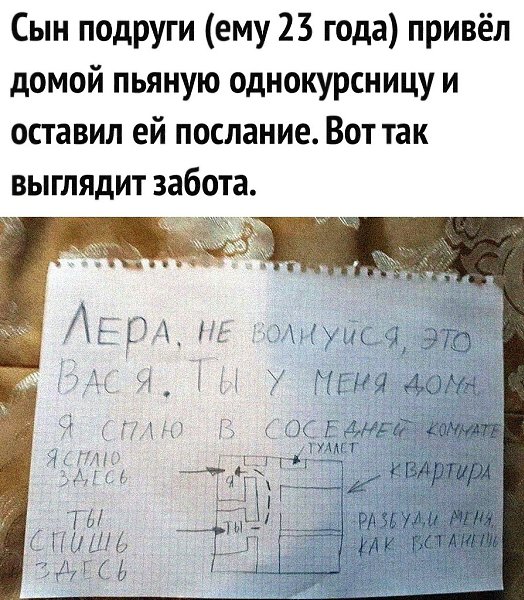 Сын подруги (ему 23 года) привёл
домой пьяную однокурсницу и
оставил ей послание. Вот так
выглядит забота.
ЛЕРА, НЕ ВОЛНУЙСЯ, ЭТО
ВАСЯ. ТЫ У МЕНЯ ДОМА
Я СПЛЮ В СОСЕДНЕЙ КОМНАТЕ
ТУАЛЕТ
Я СПЛЮ
ЗДЕСЬ
Я
КВАРТИРА
ТЫ
СПИШЬ
ЗДЕСЬ
ТЫ
РАЗБУДИ МЕНЯ
КАК ВСТАНЕШЬ